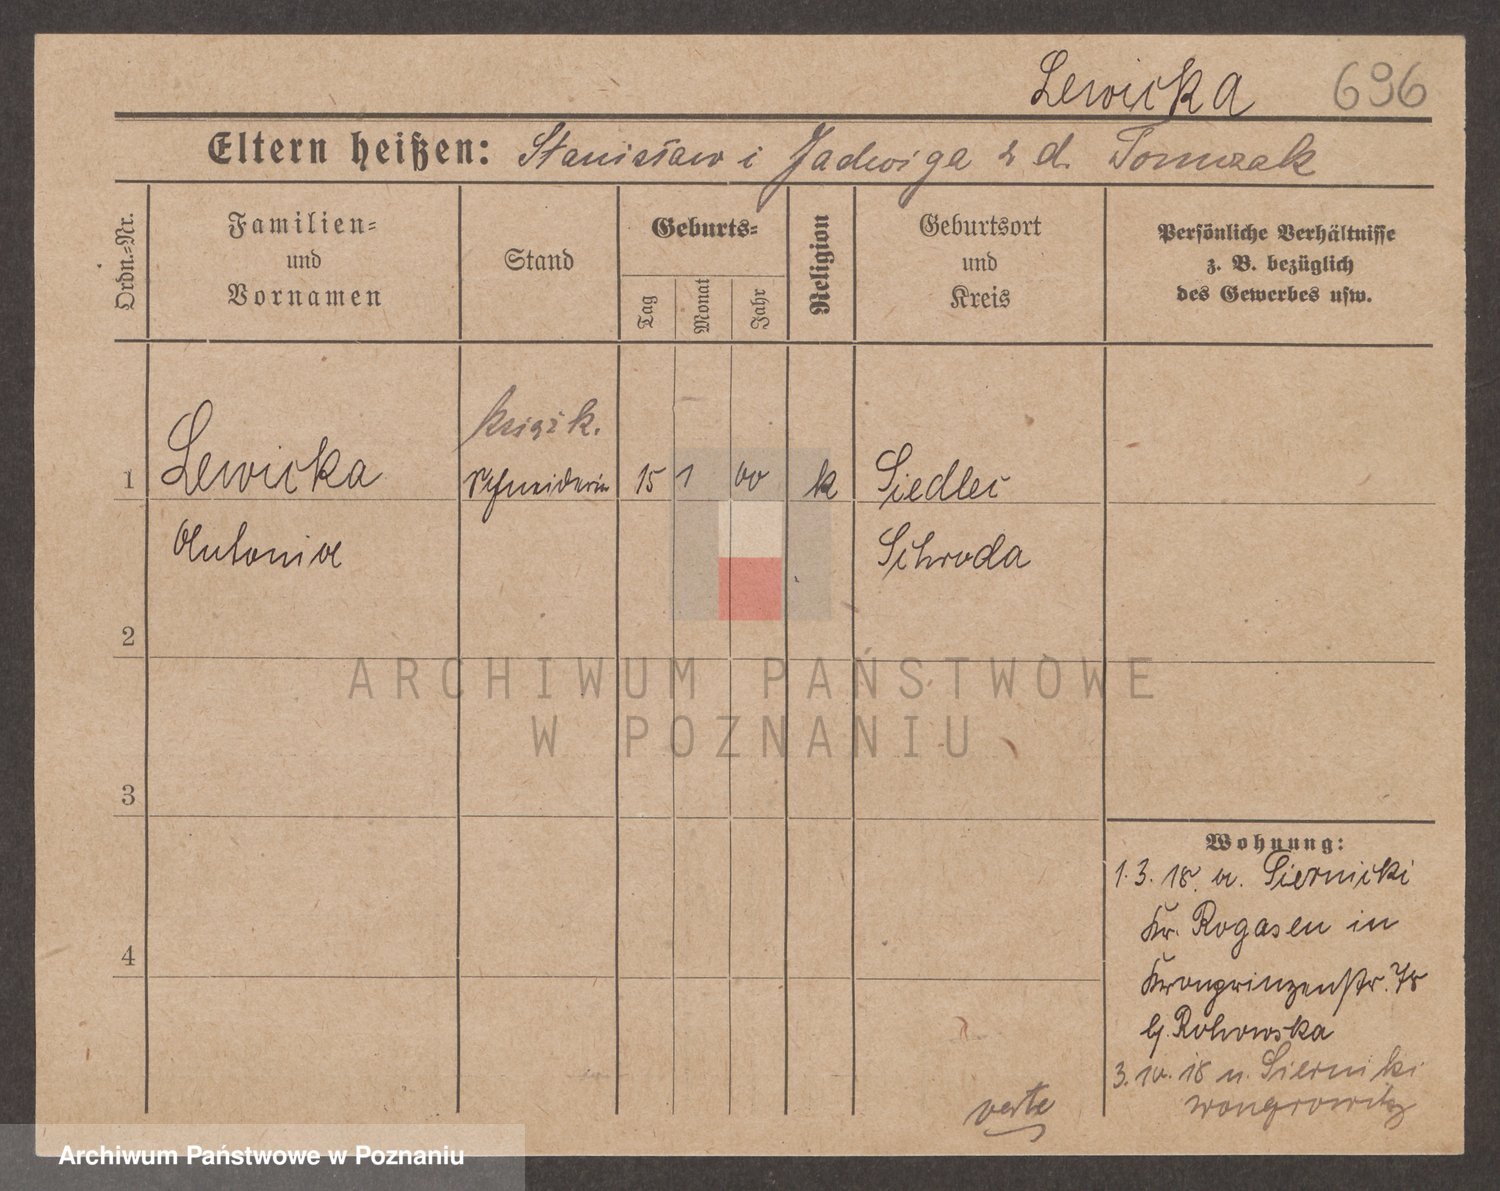 Lewicka 696
Eltern heißen: Stanisław i Jadwiga z d. Tomczak
Ordn.-Nr.
Familien-
und
Vornamen
Stand
Geburts-
Tag
Monat
Jahr
Religion
Geburtsort
und
Kreis
Persönliche Verhältnisse
z. B. bezüglich
des Gewerbes usw.
książk.
1 Lewicka Schneiderin 15 1 00 k Siedlec
Antonina Schroda
2
3
4
Wohnung:
1.3.18. a. Siernicki
Kr. Rogasen in
Kronprinzenstr. 78
b/
3.10.18 n. Siernicki
Wongrowitz
verte
ARCHIWUM PAŃSTWOWE
W POZNANIU
Archiwum Państwowe w Poznaniu